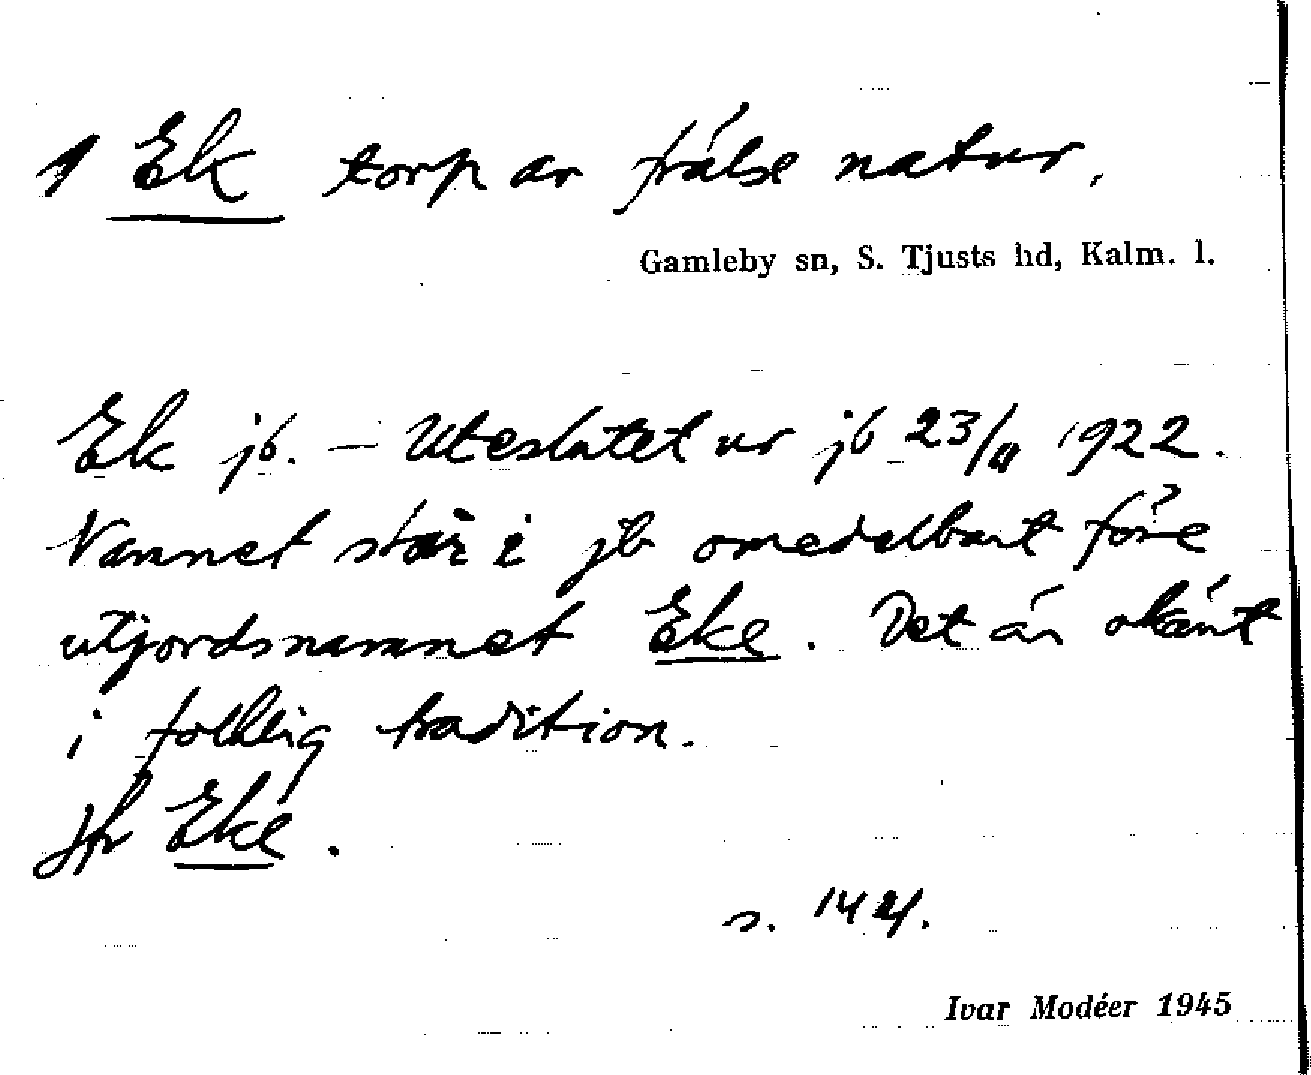 1 Ek torp av frälse natur.
Gamleby sn, S. Tjusts hd, Kalm. l.
Ek jb. – Uteslutet ur jb 23/11 1922.
Namnet står i jb omedelbart före
utjordsnamnet Eke. Det är okänt
i folklig tradition.
Jfr Eke.
s. 144.
Ivar Modéer 1945